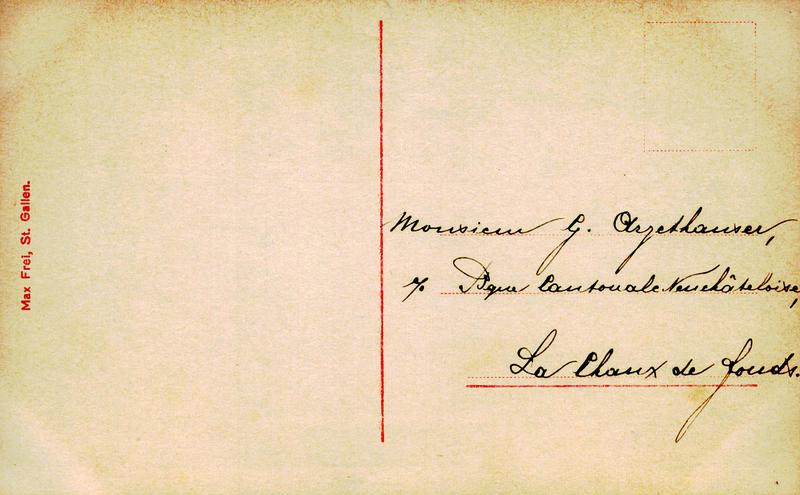 Max Frei, St. Gallen.
Monsieur G.
% Bque Cantonale Neuchâteloise,
La Chaux de fonds.